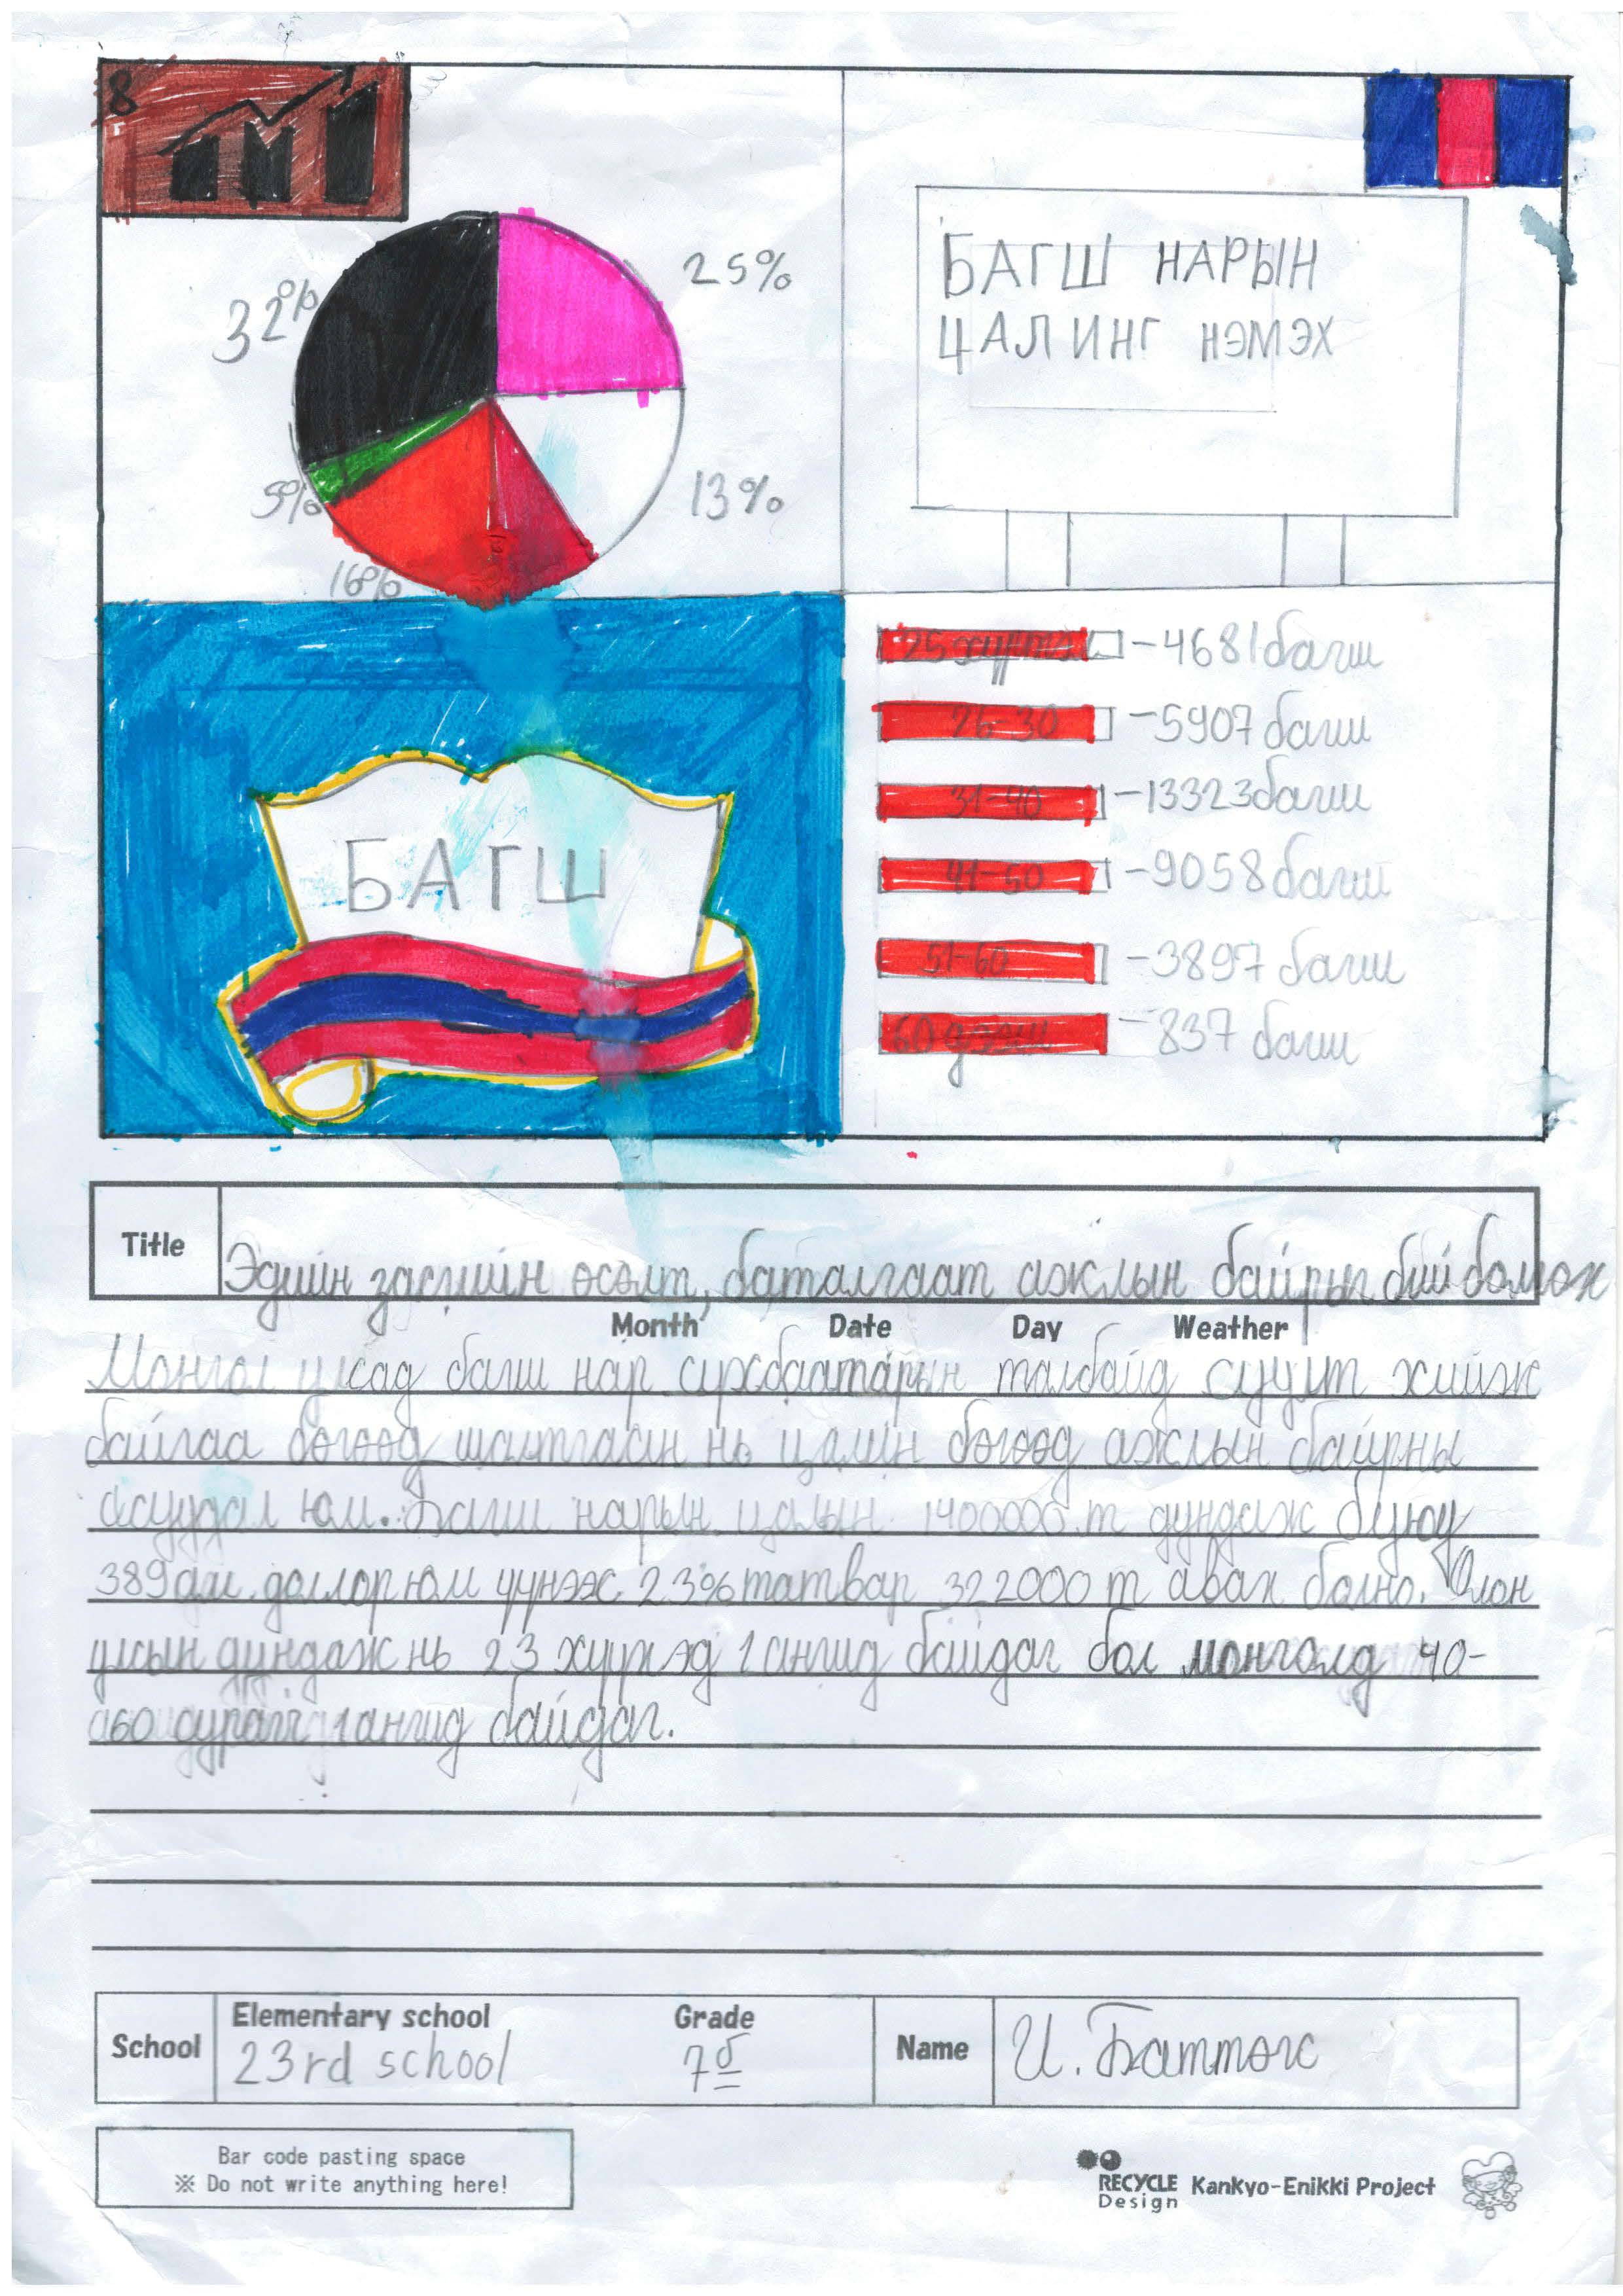 8
25%
32%
13%
5%
16%
БАГШ НАРЫН
ЦАЛИНГ НЭМЭХ
25 хүртэл -4681 багш
26-30 -5907 багш
31-40 -13323 багш
41-50 -9058 багш
51-60 -3897 багш
60 дээш -837 багш
БАГШ
Title
Эдийн засгийн өсөлт, баталгаат ажлын байрыг бий болгох
Month Date Day Weather
Монгол улсад багш нар сүхбаатарын талбайд суулт хийж
байгаа бөгөөд шалтгаан нь цалин бөгөөд ажлын байрны
асуудал юм. Багш нарын цалин 1400000 т дундаж буюу
389 ам. доллор юм үүнээс 23% татвар 322000 т авах болно. Олон
улсын дундаж нь 23 хүүхэд 1 ангид байдаг бол монголд 40-
60 сурагч 1 ангид байдаг.
School
Elementary school
23rd school
Grade
7б
Name
И. Баттөгс
Bar code pasting space
※ Do not write anything here!
RECYCLE
Design
Kankyo-Enikki Project